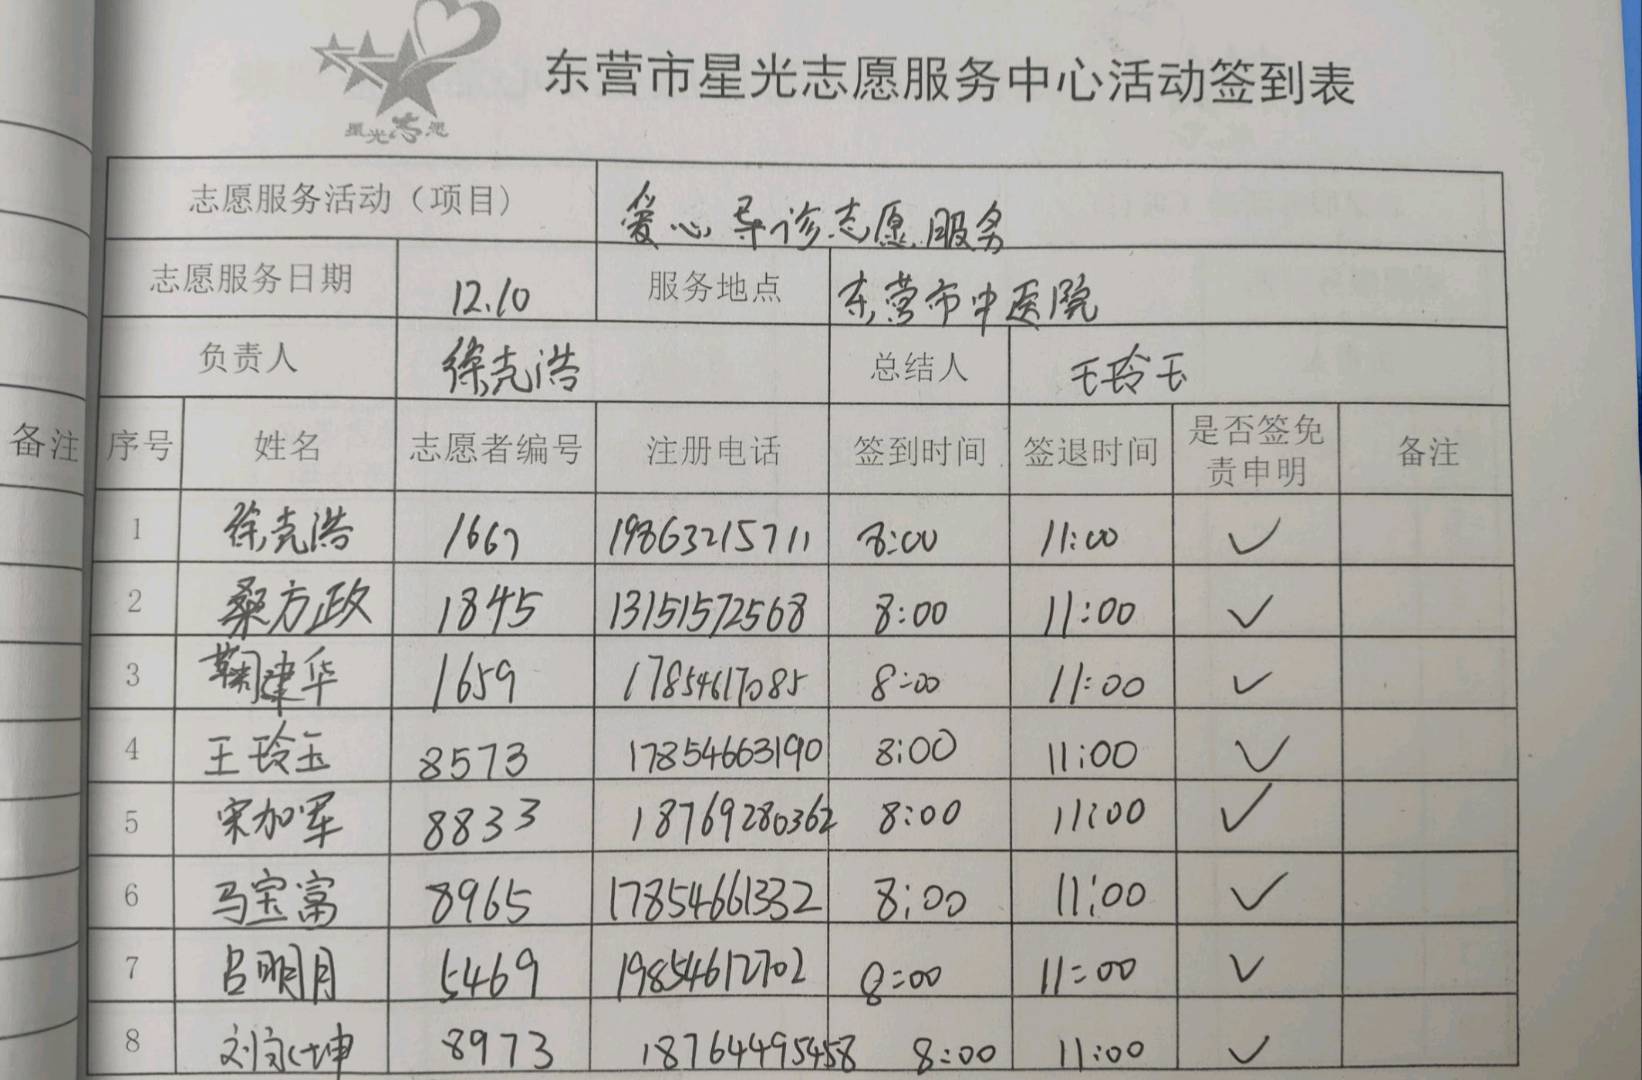 星光志愿
东营市星光志愿服务中心活动签到表
志愿服务活动（项目） 爱心导诊志愿服务
志愿服务日期 12.10 服务地点 东营市中医院
负责人 徐克浩 总结人 王玲玉
备注 序号 姓名 志愿者编号 注册电话 签到时间 签退时间 是否签免责申明 备注
1 徐克浩 1667 19863215711 8:00 11:00 ✓
2 桑方政 1845 13151572568 8:00 11:00 ✓
3 鞠建华 1659 17854617085 8:00 11:00 ✓
4 王玲玉 8573 17854663190 8:00 11:00 ✓
5 宋加军 8833 18769280362 8:00 11:00 ✓
6 马宝富 8965 17854661332 8:00 11:00 ✓
7 吕明月 5469 19854612702 8:00 11:00 ✓
8 刘永坤 8973 18764495458 8:00 11:00 ✓